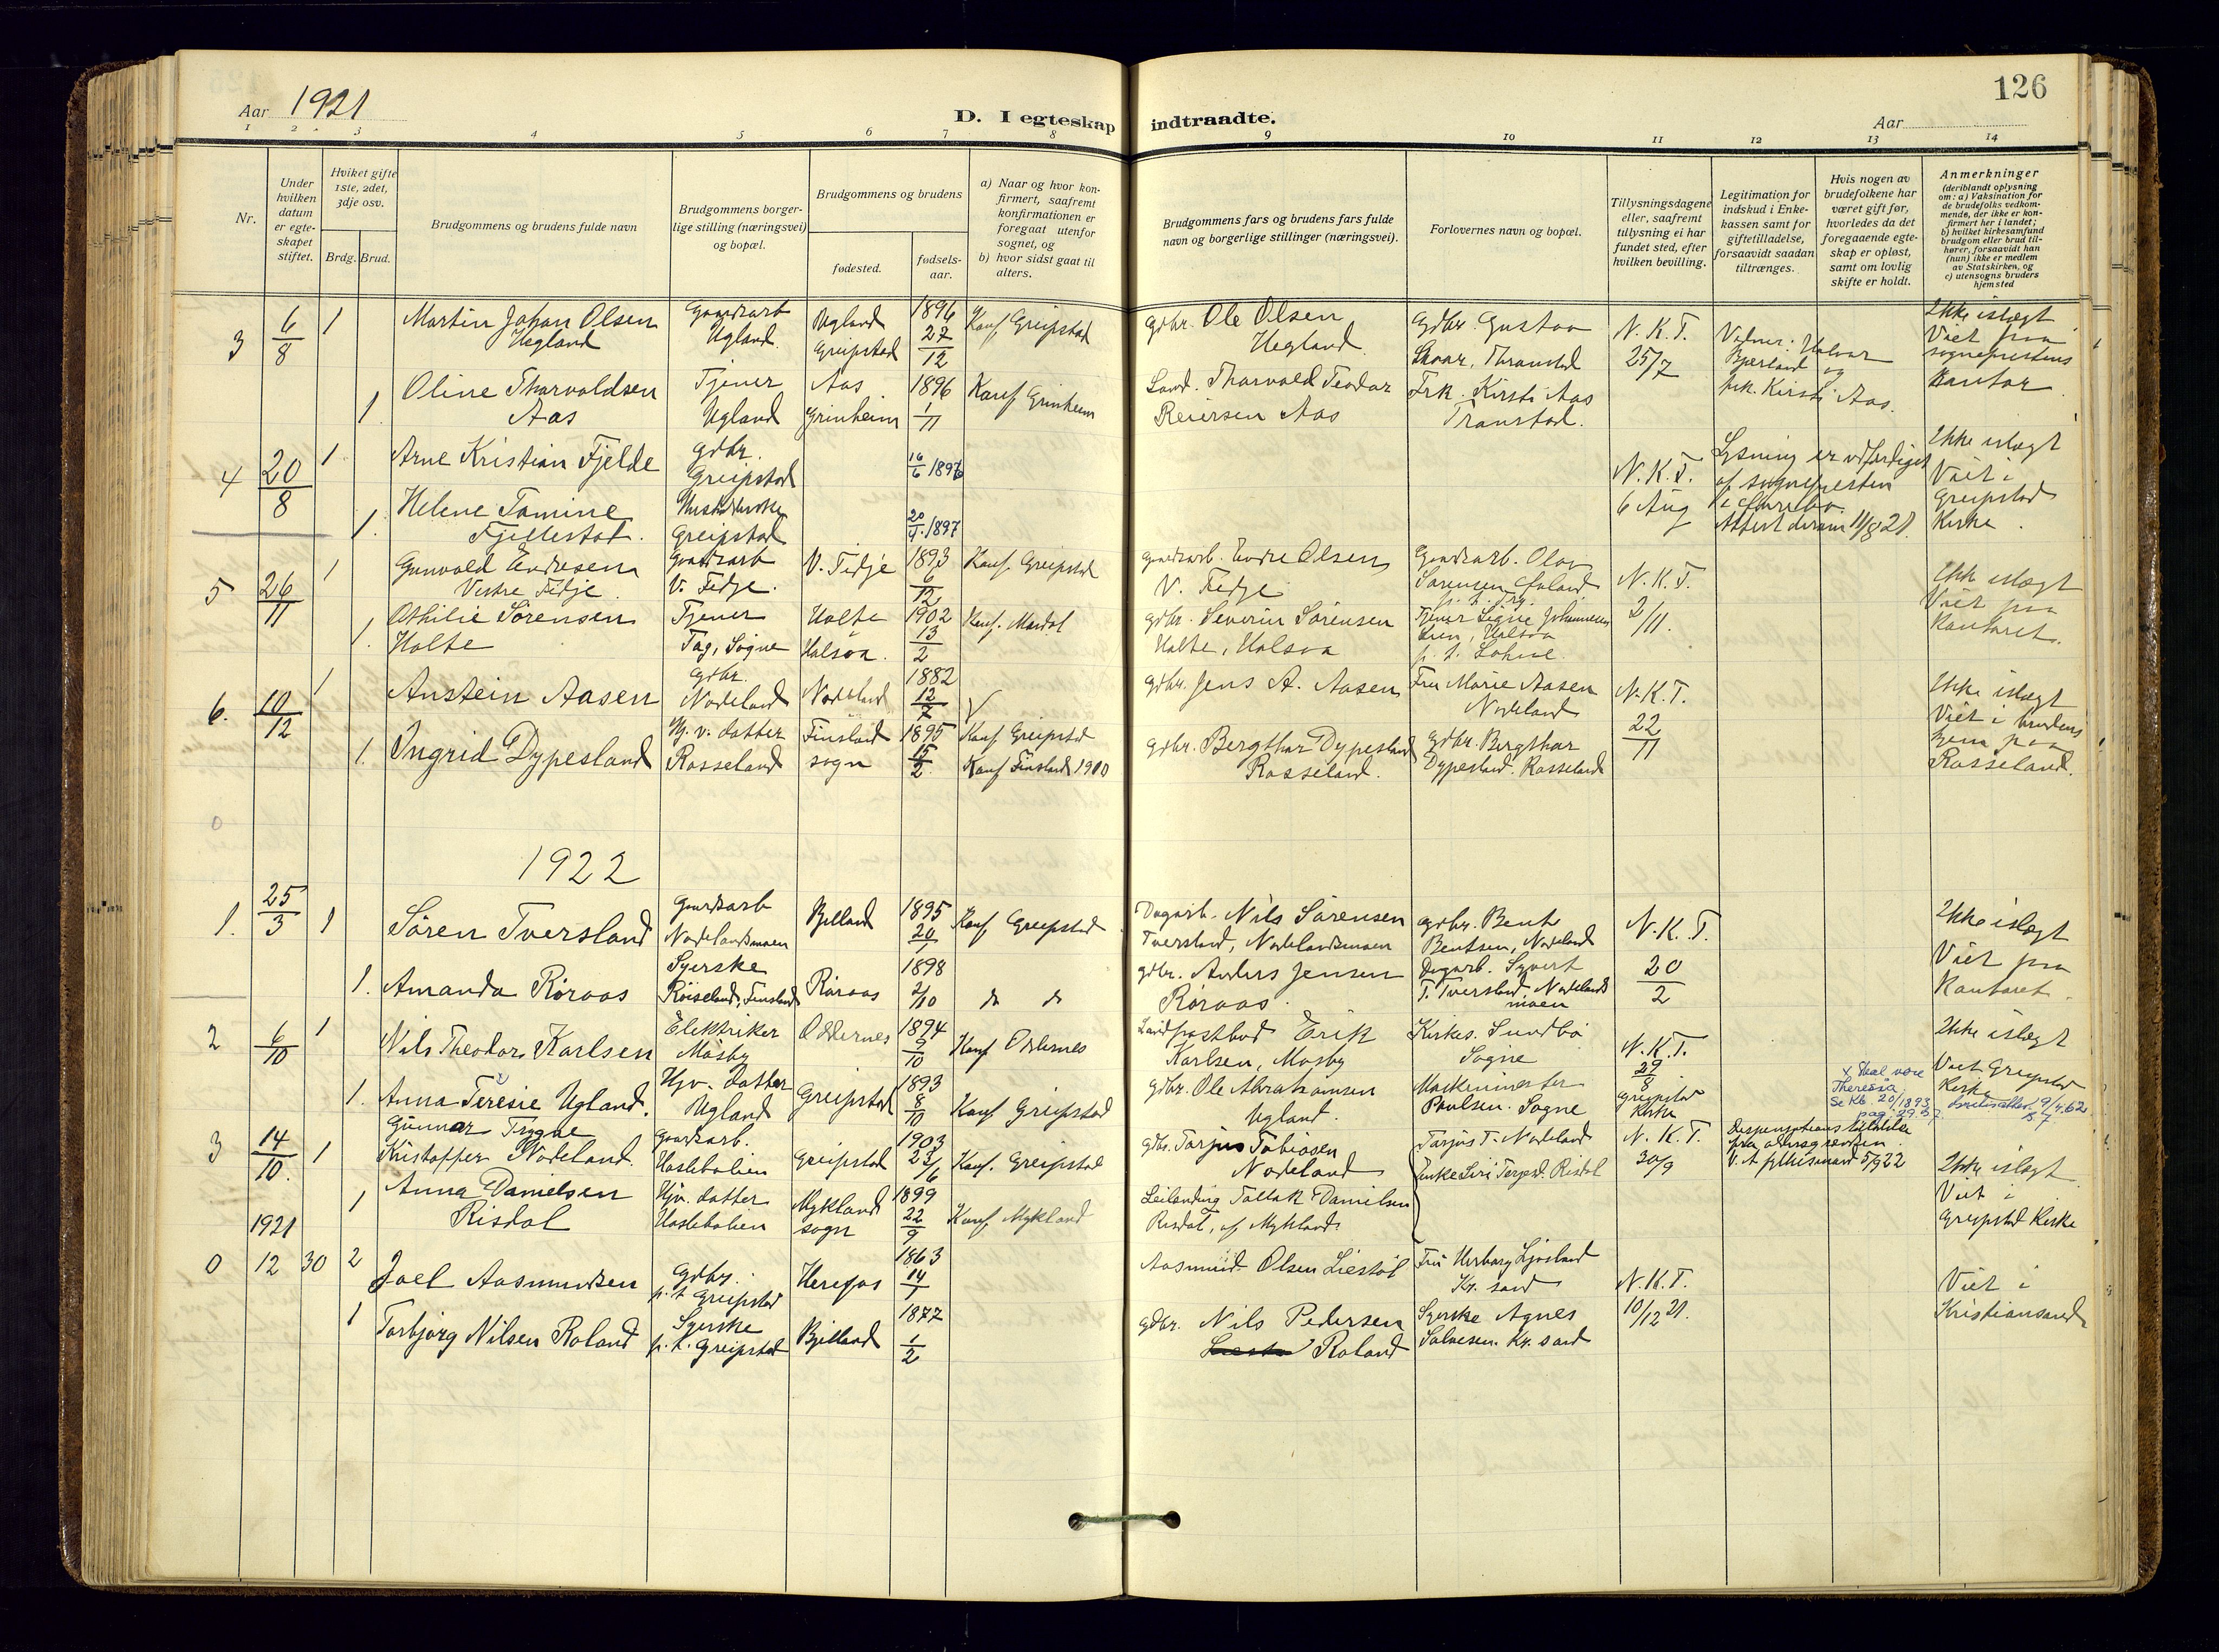 126
Aar 1921
D. I egteskap indtraadte.
Aar
1 2 3 4 5 6 7 8 9 10 11 12 13 14
Nr.
Under hvilken datum er egte-skapet stiftet.
Hvilket gifte 1ste, 2det, 3dje osv.
Brdg. Brud.
Brudgommens og brudens fulde navn
Brudgommens borger-lige stilling (næringsvei) og bopæl.
Brudgommens og brudens
fødested.
fødsels-aar.
a) Naar og hvor kon-firmert, saafremt konfirmationen er foregaat utenfor sognet, og
b) hvor sidst gaat til alters.
Brudgommens fars og brudens fars fulde navn og borgerlige stillinger (næringsvei).
Forlovernes navn og bopæl.
Tillysningsdagene eller, saafremt tillysning ei har fundet sted, efter hvilken bevilling.
Legitimation for indskud i Enke-kassen samt for giftetilladelse, forsaavidt saadan tiltrænges.
Hvis nogen av brudefolkene har været gift før, hvorledes da det foregaaende egte-skap er opløst, samt om lovlig skifte er holdt.
Anmerkninger
(deriblandt oplysning om: a) Vaksination for de brudefolks vedkom-mende, der ikke er kon-firmert her i landet; b) hvilket kirkesamfund brudgom eller brud til-hører, forsaavidt han (hun) ikke er medlem av Statskirken, og c) utensogns bruders hjemsted
3 6/8 1 Martin Johan Olsen Gaardsarb Ugland 1896 Konf Greipstad gdbr. Ole Olsen Gdbr. Gustav N. K. T. Ikke i slægt
Hegland Ugland Greipstad 27/12 Hegland Skaar, Thranstad 25/7 Bjærland og Viet paa sogneprestens
1 Oline Thorvaldsen Tjener Aas 1896 Konf Grinheim Thorvald Teodor Frk. Kirsti Aas frk. Kirsti Aas. Kantor
Aas Ugland Grinheim 1/11 Reiersen Aas Transtad.
4 20/8 1 Arne Kristian Fjelde gdbr. 16/6 1896 N. K. T. Lysning er utfærdiget Ikke islægt
Greipstad 6 Aug af sognepresten Viet i
1. Helene Tomine 20/4 1897 Attest derom 11/8 21. Greipstad
Fjellestad. Greipstad Kirke.
5 26/11 1 Gunvald Endresen Gaardsarb V. Fidje 1893 Konf. Greipstad Gaardsarb. Endre Olsen Gaardsarb. Olav N. K. T. Ikke islægt
Vestre Fidje. V. Fidje. 6/12 V. Fidje Sørensen 2/11. Viet paa
1. Othilie Sørensen Tjener Holte 1902 Konf. Mandal gdbr. Severin Sørensen Tjener Signe Johannesen Kontoret.
Holte Tag, Søgne Halsaa. 13/2 Holte, Halsaa p. t. Lohne.
6. 10/12 1 Anstein Aasen gdbr. Nodeland Nodeland 1882 12/7 gdbr. Jens A. Aasen Fru Marie Aasen N. K. T. Ikke islægt
Nodeland 22/11 Viet i brudens
1. Ingrid Dypesland Hj. v. datter Finsland 1895 Konf Greipstad gdbr. Bergthor Dypesland gdbr. Bergthor hjem paa
Rosseland sogn 15/2 Konf Finsland 1910 Rosseland. Dypesland. Rosseland Rosseland.
0
1922
1. 25/3 1 Søren Tversland Gaardsarb Bjelland 1895 Konf Greipstad Dagarb. Nils Sørensen gdbr. Bent N. K. T. Ikke islægt
Nodelandsmoen 20/1 Tversland, Nodelandsmoen Bentsen, Nodeland 20/2 Viet paa
1. Amanda Røraas Syerske Røraas 1898 do do gdbr. Anders Jensen Dagarb. Syvert Kontoret.
Røiseland, Finsland 2/10 Røraas. T. Tversland Nodelands moen
2 6/10 1 Nils Theodor Karlsen Elektriker Oddernes 1894 Konf Oddernes Landpostbud Erik Kirkes. Sundbø N. K. T. Ikke islægt
Mosby 9/10 Karlsen, Mosby Søgne 29/8 Viet Greipstad
1. Anna Teresie Ugland. Hjv. datter Greipstad 1893 Konf Greipstad gdbr. Ole Abrahamsen Maskinmester Greipstad Kirke
Ugland 8/11 Ugland. Poulsen. Søgne Kirke
x Skal være Theresia. Se Kb. 20/1893 pag. 29
3 14/10. 1 Gunnar Trygve Gaardsarb. Greipstad 1903 Konf. Greipstad gdbr. Tarjus Tobiasen Tarjus T. Nodeland N. K. T. Dispensations tilladelse Ikke islægt
Kristoffer Nodeland. Haslebalien 23/6 Nodeland Enke Siri Terges. Risdal 30/9 fra aldersgrensen. Viet i
1 Anna Danielsen Hjv. datter Mykland 1899 Konf Mykland Leilending Tallak Danielsen 5/9 22 Greipstad Kirke
Risdal Haslebalien sogn 22/9 Risdal, af Mykland
1921
0 12 30 2 Joel Aasmundsen Gdbr. Herefos 1863 Aasmund Olsen Liestøl Fru Herborg Ljosland N. K. T. Viet i
p. t Greipstad 14/1 Kr. sand 10/12 21. Kristiansand
1 Torbjørg Nilsen Roland Syerske Bjelland 1877 gdbr. Nils Pedersen Syerske Agnes
p. t. Greipstad 1/2 Roland Salvesen. Kr. sand